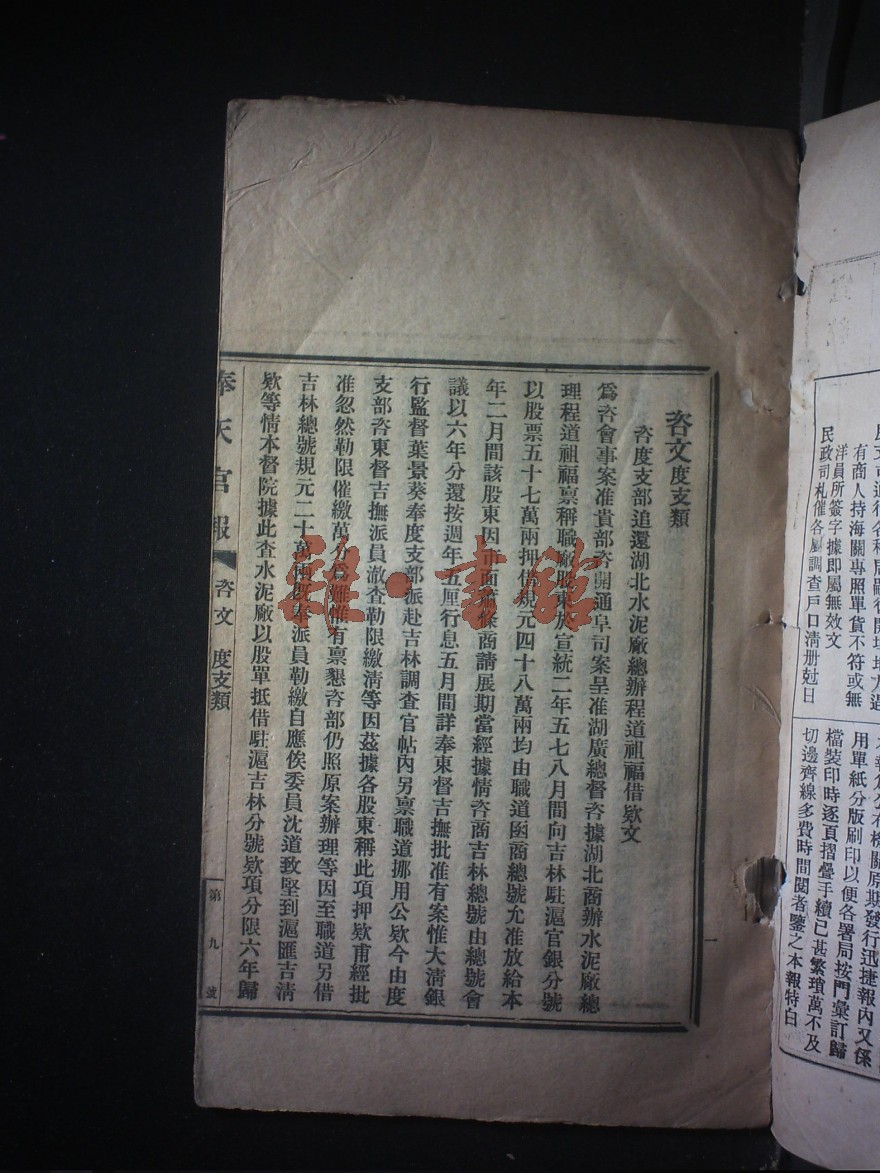 有商人持海關專照單貨不符或無
洋員所簽字據即屬無效文
民政司札催各屬調查戶口清册尅日
公布機關原期發行迅捷報內又係
用單紙分版刷印以便各署局按門彙訂歸
檔裝印時逐頁摺疊手續已甚繁瑣萬不及
切邊齊線多費時間閱者鑒之本報特白
咨文度支類
咨度支部追還湖北水泥廠總辦程道祖福借欵文
爲咨會事案准貴部咨開通阜司案呈准湖廣總督咨據湖北商辦水泥廠總
理程道祖福禀稱職廠股東於宣統二年五七八月間向吉林駐滬官銀分號
以股票五十七萬兩押借規元四十八萬兩均由職道函商總號允准放給本
年二月間該股東因市面蕭條商請展期當經據情咨商吉林總號由總號會
議以六年分還按週年五厘行息五月間詳奉東督吉撫批准有案惟大清銀
行監督葉景葵奉度支部派赴吉林調查官帖內另禀職道挪用公欵今由度
支部咨東督吉撫派員澈查勒限繳清等因茲據各股東稱此項押欵甫經批
准忽然勒限催繳萬分爲難惟有禀懇咨部仍照原案辦理等因至職道另借
吉林總號規元二十萬兩既奉派員勒繳自應俟委員沈道致堅到滬匯吉清
欵等情本督院據此查水泥廠以股單抵借駐滬吉林分號欵項分限六年歸
奉天官報 咨文 度支類 第九號
一
雜·書館